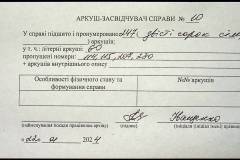 АРКУШ-ЗАСВІДЧУВАЧ СПРАВИ № 10
У справі підшито і пронумеровано 247 звісті сорок сім
) аркушів;
у т. ч.: літерні аркуші 60
пропущені номери 114, 115, 207, 220
+ аркушів внутрішнього опису
Особливості фізичного стану та формування справи
№№ аркушів
(найменування посади працівника архіву)
(підпис)
(ініціали, прізвище)
«22» 01 2024